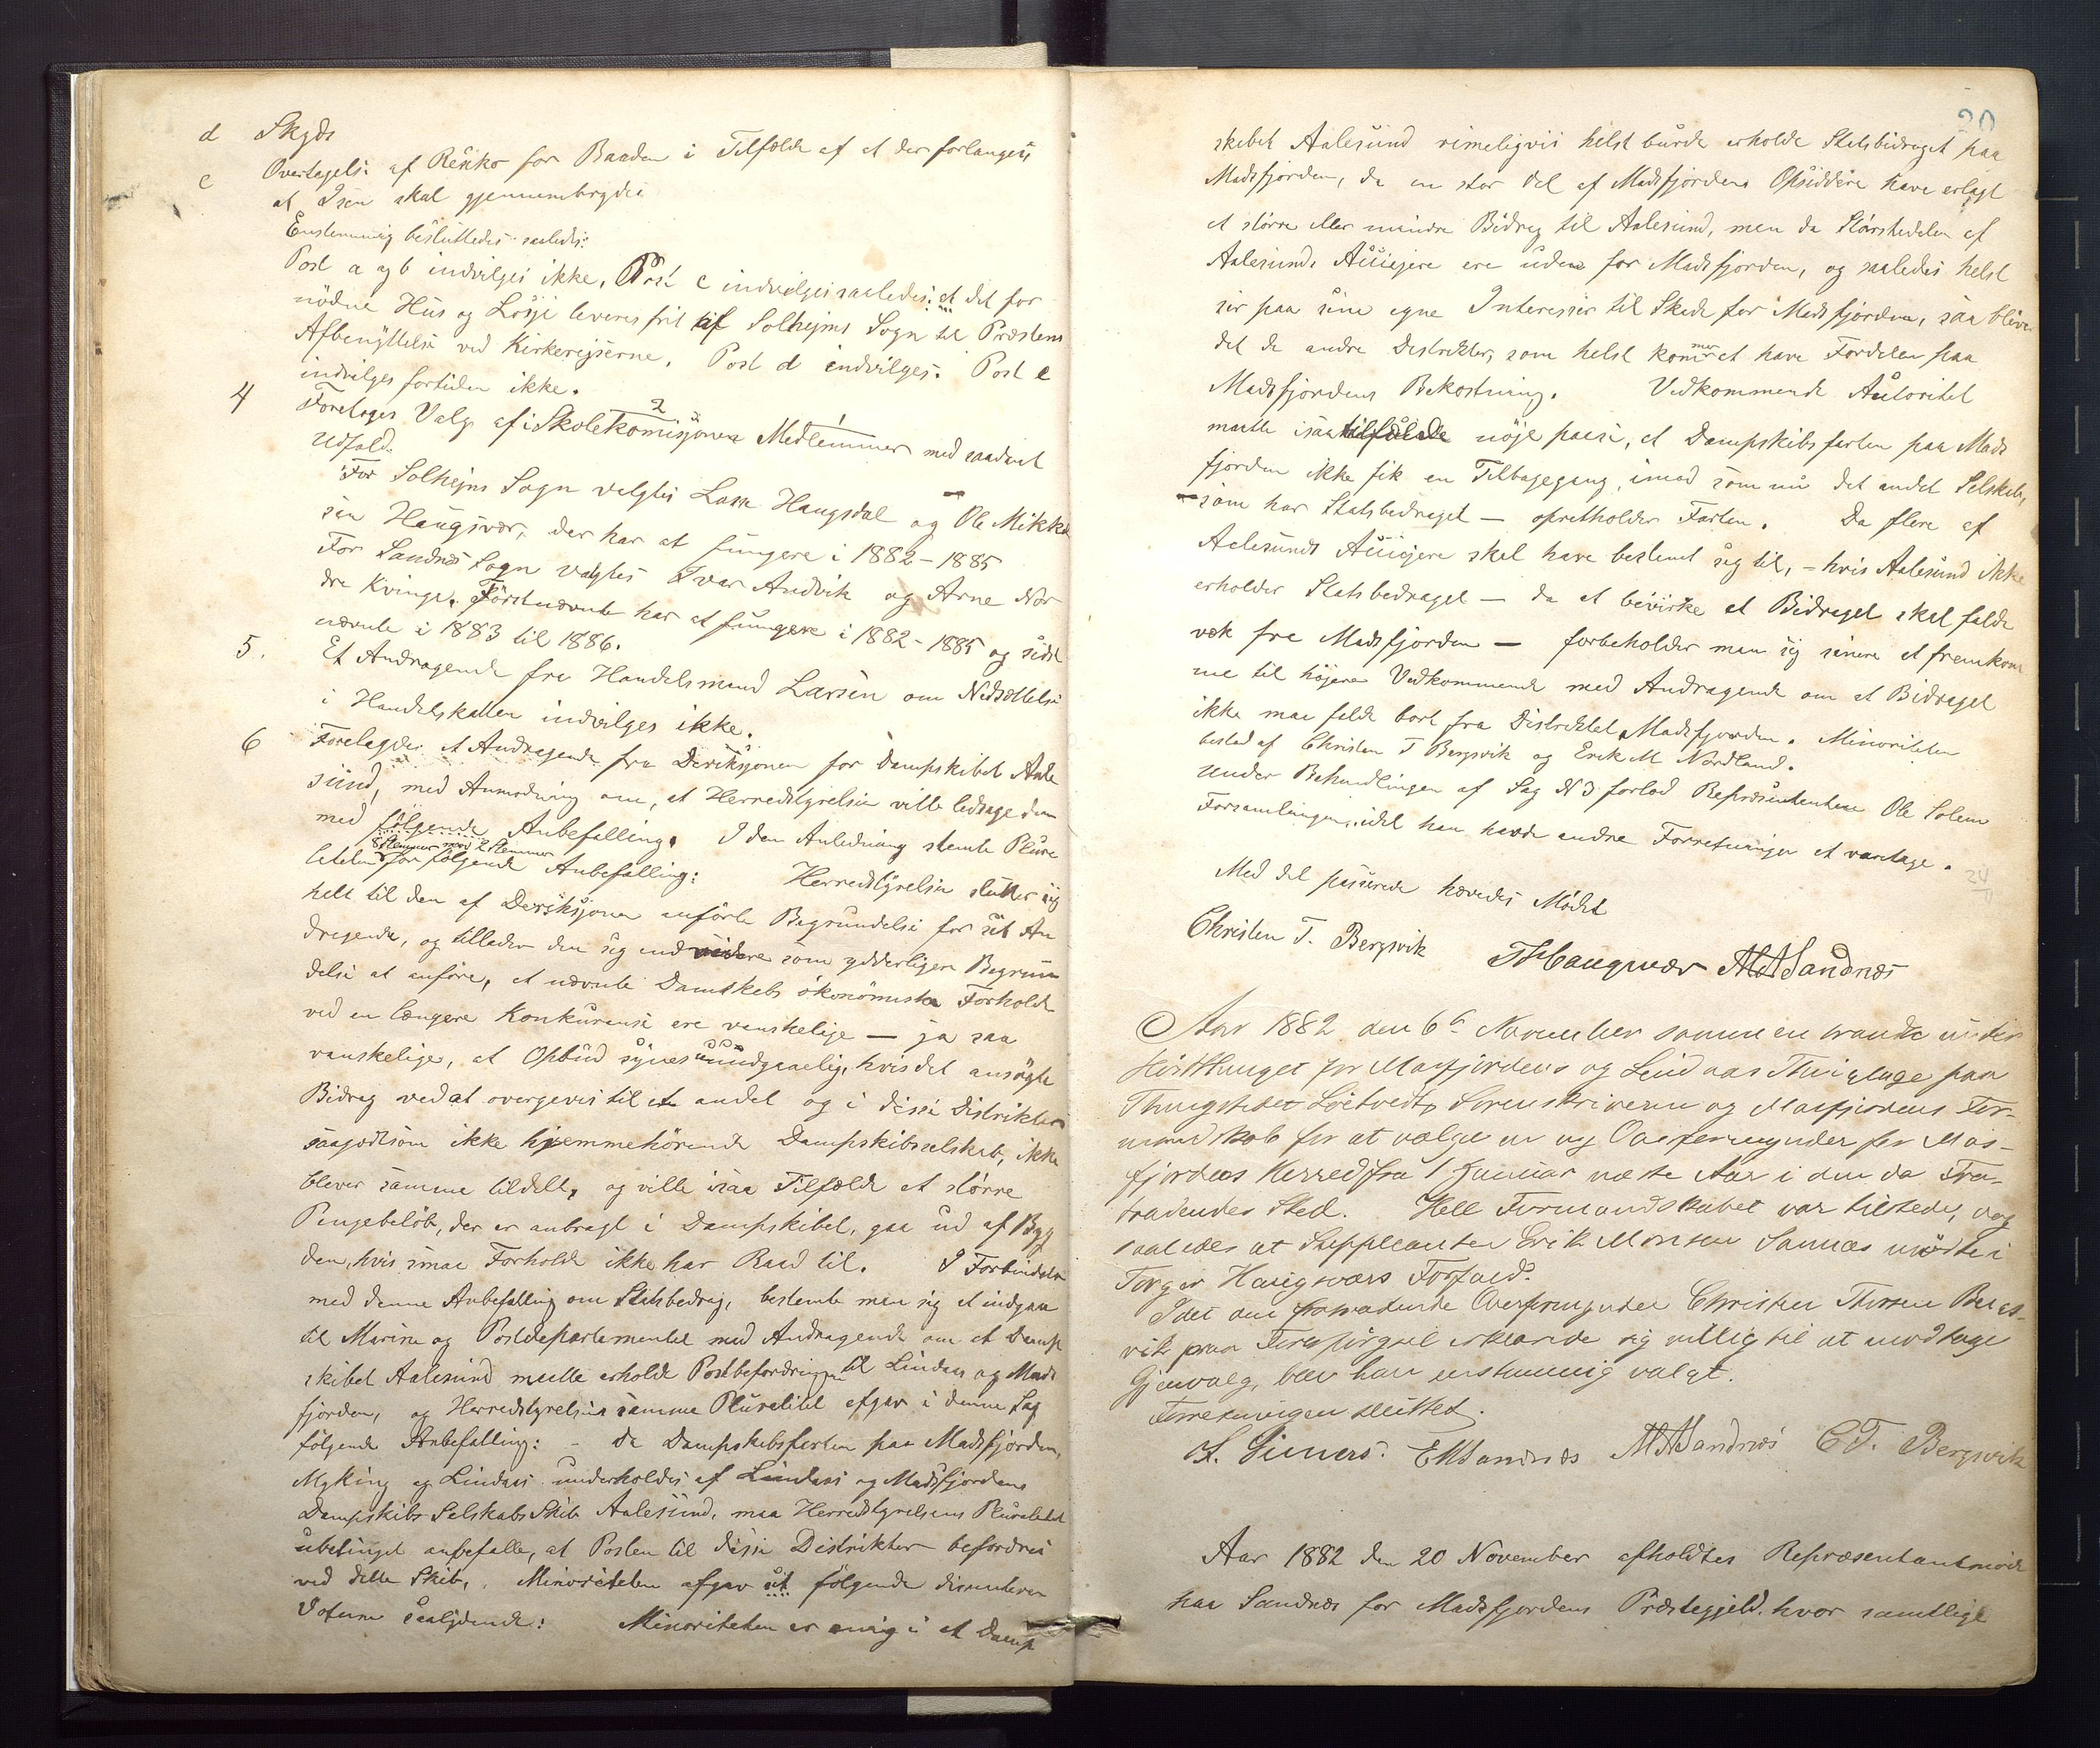 d Skyds
e Overtagelse af Resiko for Baaden i Tilfælde af at der forlanges
at Isen skal gjennembrydes
Enstemmig besluttedes saaledes:
Post a og b indvilges ikke. Post c indvilges saaledes: at det for
nødne Hus og Losje leveres frit af Solhejms Sogn til Præstens
Afbenyttelse ved Kirkerejserne. Post d indvilges. Post e
indvilges fortiden ikke.
4 Foretoges Valg af 2 i Skolekomisjonen Medlemmer med saadant
Udfald.
For Solhejms Sogn valgtes Lasse Haugsdal og Ole Mikkel
sen Haugsvær, der har at fungere i 1882-1885
For Sandnes Sogn valgtes Ivar Andvik og Arne Nor
dre Kvinge. Førstnævnte har at fungere i 1882-1885 og sidst
nævnte i 1883 til 1886.
5. Et Andragende fra Handelsmand Larsen om Nedsættelse
i Handelskatten indvilges ikke.
6 Forelagdes et Andragende fra Dereksjonen for Dampskibet Aale
sund, med Anmodning om, at Herredstyrelsen ville ledsage den
med følgende Anbefalling. I den Anledning stemte Plura
8 stemmer mod 2 stemmer
liteten for følgende Anbefalling: Herredstyrelsen slutter sig
helt til den af Dereksjonen anførte Begrundelse for sit An
dragende, og tillader den sig endvidere som ydderligere Begrun
delse at anføre, at nævnte Damskebs økonomiske Forholde
ved en længere Konkuranse ere vanskelige — ja saa
vanskelige, at Opbud synes uundgaaelig, hvis det ansøgte
Bidrag ved at overgives til et andet og i disse Distrikter
saagodtsom ikke hjemmehørende Dampskibsselskab, ikke
blever samme tildelt, og ville isaa Tilfælde et større
Pengebeløb, der er anbragt i Dampskibet, gaa ud af Byg
den, hvis smaa Forholde ikke har Raad til. I Forbindelse
med denne Anbefalling om Statsbedrag, bestemte man sig at indgaa
til Marine og Postdepartementet med Andragende om at Damp
skibet Aalesund maatte erholde Postbefordringen til Lindaas og Mads
fjorden, og Herredstyrelsens samme Pluralitet afgav i denne Sag
følgende Anbefalling: - Da Dampskibsfarten paa Madsfjorden,
Myking og Lindaas underholdes af Lindaas og Madsfjordens
Dampskibs Selskabs Skib Aalesund, maa Herredstyrelsens Pluralitet
ubetinget anbefalle, at Posten til disse Distrikter befordres
ved dette Skib. Minoriteten afgav sit følgende disenteren
Votum saalydende: Minoriteten er enig i at Damp
20
skibet Aalesund rimeligvis helst burde erholde Statsbidraget paa
Madsfjorden, da en stor Del af Madsfjordens Opsiddere have erlagt
et større eller mindre Bidrag til Aalesund, men da Størstedelen af
Aalesunds Auiejere ere uden for Madsfjorden, og saaledes helst
ser paa sine egne Interesser til Skade for Madsfjorden, saa bliver
det de andre Destrikter, som helst kommer at have Fordelen paa
Madsfjordens Bekostning. Vedkommende Autoritet
maatte isaa tilfælde nøje passe, at Dampskibsfarten paa Mads
fjorden ikke fik en Tilbagegang, imod som nu det andet Selskab,
— som har Statsbedraget — opretholder Farten. Da flere af
Aalesunds Auiejere skal have bestemt sig til, - hvis Aalesund ikke
erholder Statsbedraget — da at bevirke at Bidraget skal falde
væk fra Madsfjorden — forbeholder man sig senere at fremkom
me til højere Vedkommende med Andragende om at Bidraget
ikke maa falde bort fra Distriktet Madsfjorden. Minoriteten
bestod af Christen T Bergsvik og Erik M Nordland.
Under Behandlingen af Sag N 3 forlod Repræsentanten Ole Solem
Forsamlingen, idet han havde andre Forretninger at varetage.
24
Med det passerede hævedes Mødet
Christen T. Bergsvik THaugsvær MASandnæs
Aar 1882 den 6te November sammentraadte under
Høstthinget for Masfjordens og Lindaas Thinglage paa
Thingstedet Sorenskriveren og Masfjordens For-
mandskab for at vælge en ny Overformynder for Mas-
fjordens Herred fra 1 Januar næste Aar i den da Fra-
trædendes Sted. Hele Formandskabet var tilstede, dog
saaledes at Suppleanten Erik Monsen Sannæs mødte i
Torger Haugsværs Forfald.
Idet den fratrædende Overformynder Christen Thorsen Bergs-
vik paa Forespørgsel erklærede sig villig til at modtage
Gjenvalg, blev han enstemmig valgt.
Forretningen sluttet.
EMSandnæs MASandnæs C T. Bergsvik
Aar 1882 den 20 November afholdtes Repræsentantmøde
paa Sandnæs for Madsfjordens Præstegjeld, hvor samtlige